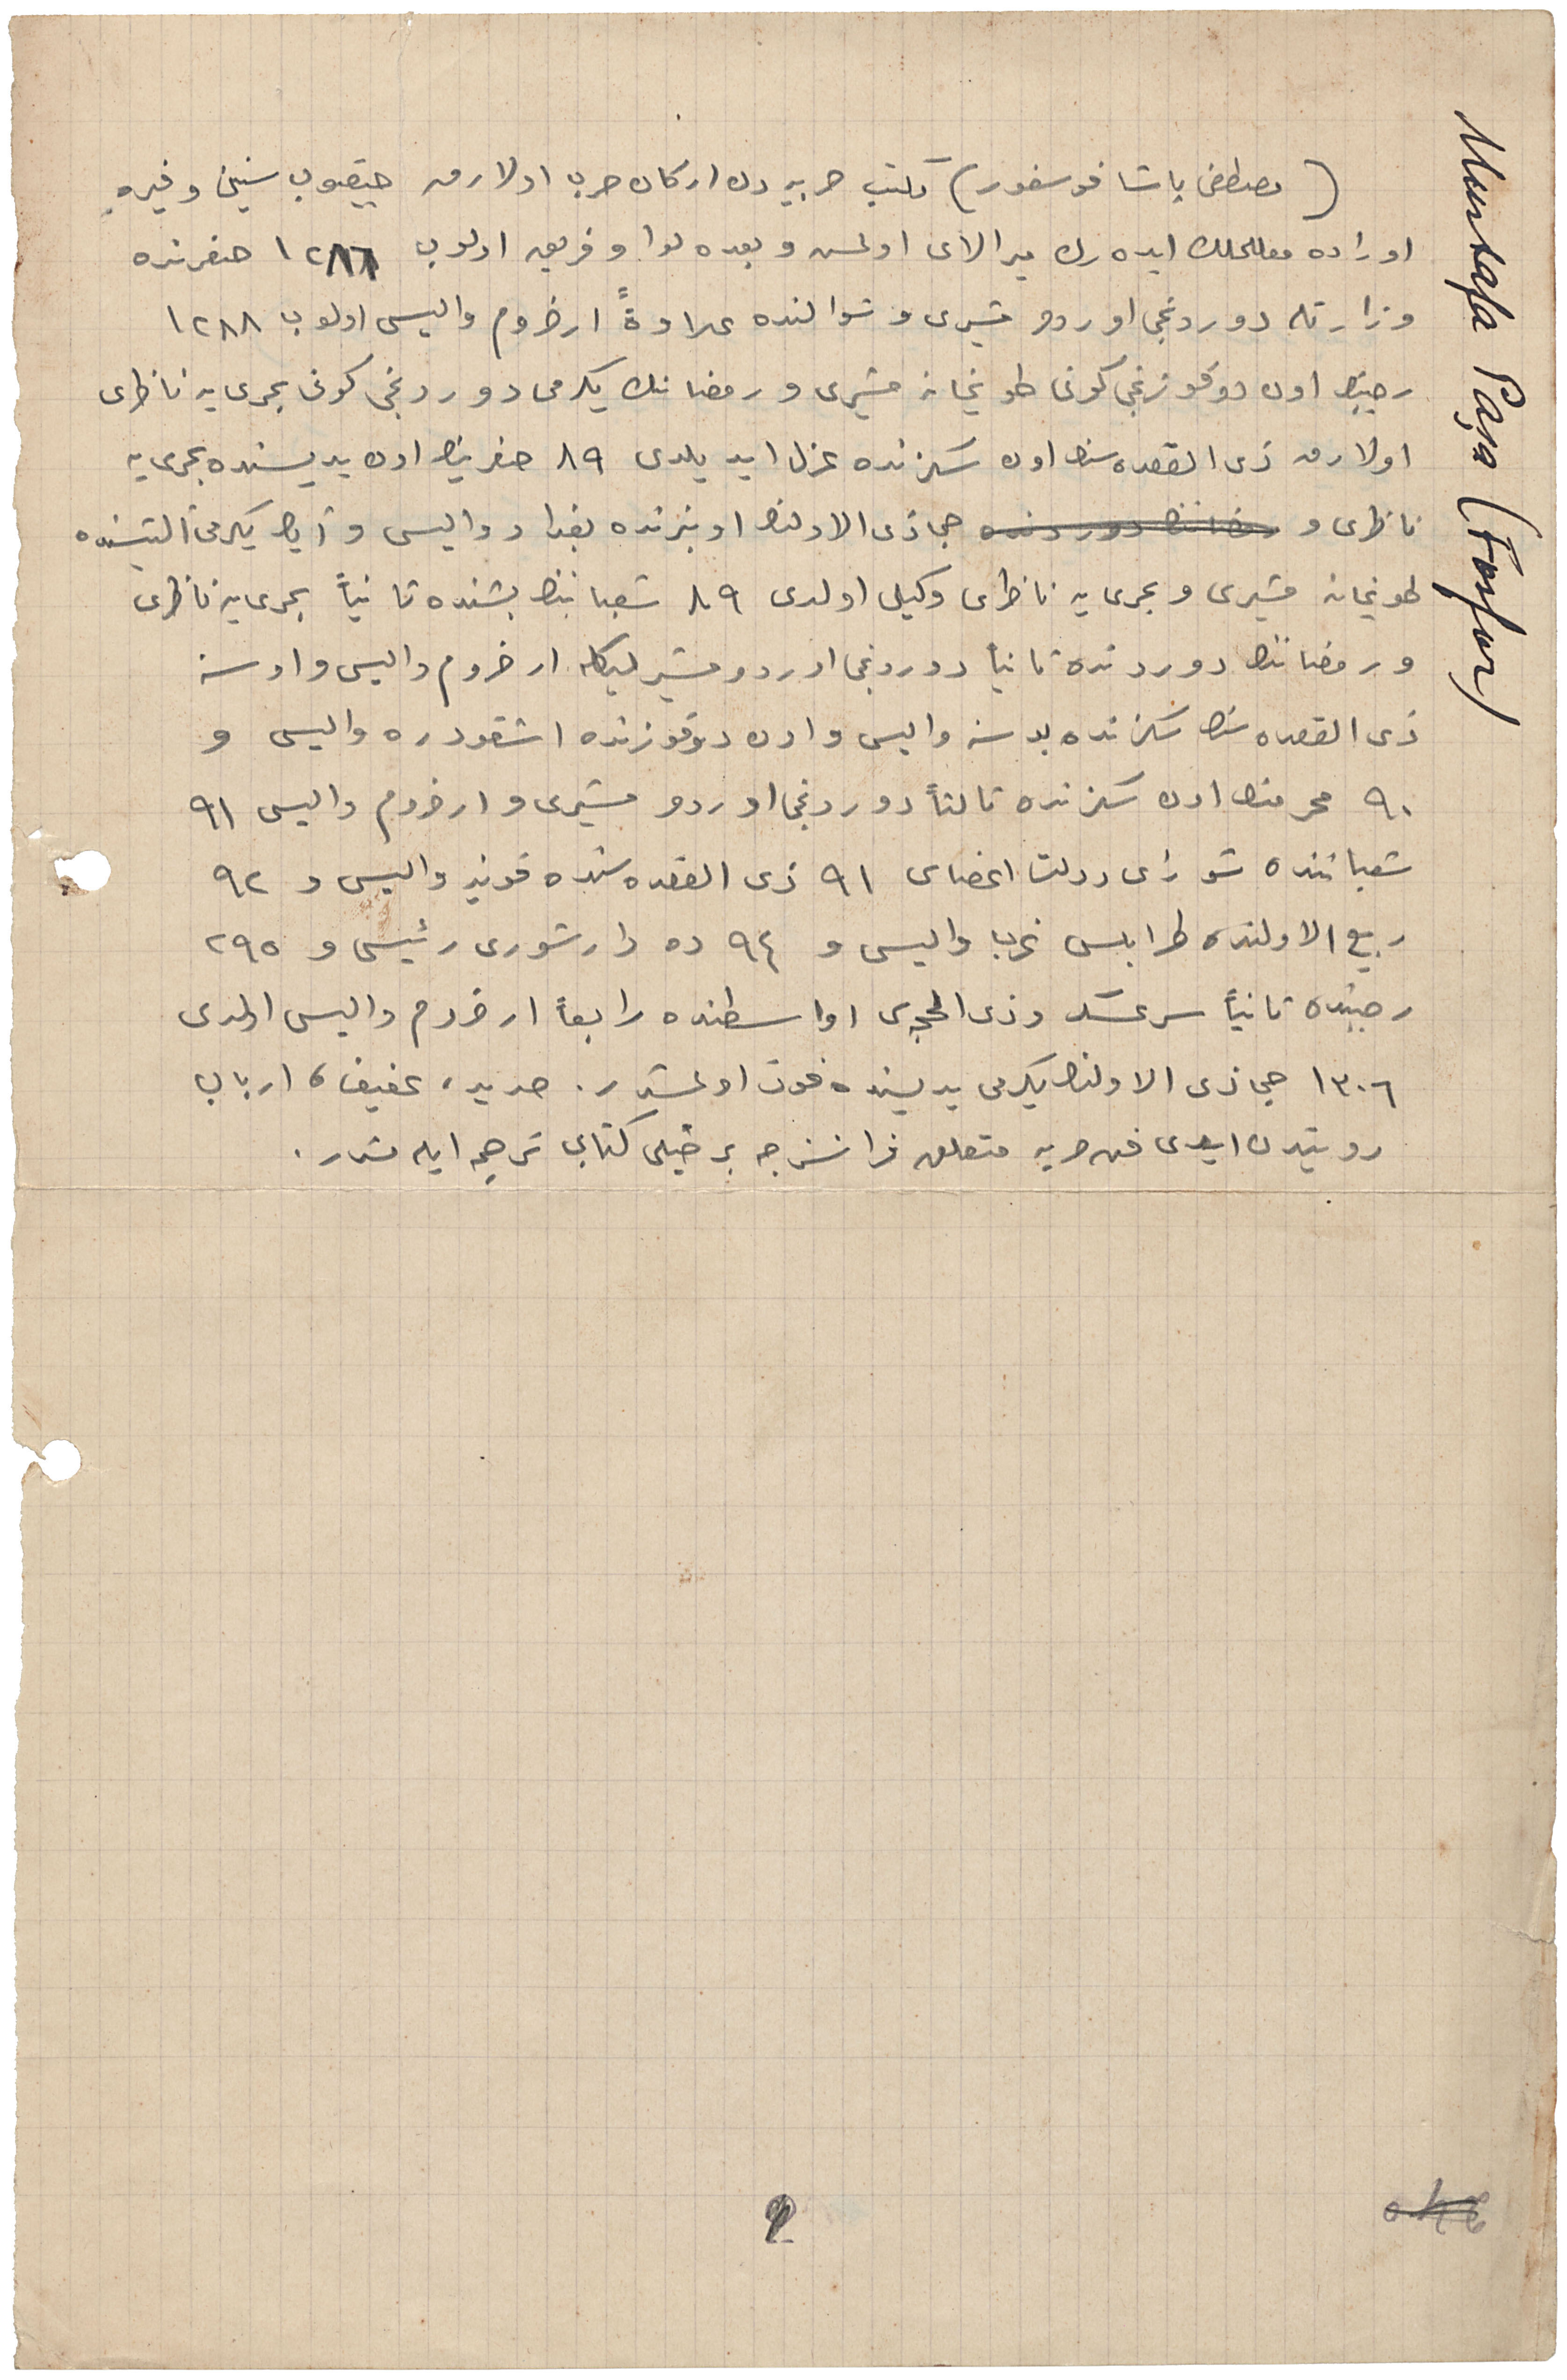 Mustafa Paşa (Fosfor)
(مصطفى پاشا فوسفور) مكتب حربيه دن اركان حرب اولارق چيقوب سنين وفيره
اوراده معلملك ايده رك ميرالاى اولمش و بعده لوا و فريق اولوب ١٢٨٦ صفرنده
وزارتله دوردنجى اوردو مشيرى و شوالنده علاوةً ارضروم واليسى اولوب ١٢٨٨
رجبنك اون دوقوزنجى كونى طوپخانه مشيرى و رمضاننك يكرمى دوردنجى كونى بحريه ناظرى
اولارق ذى القعده سنك اون سكزنده عزل ايديلدى ٨٩ صفرينك اون يديسنده بحريه
ناظرى و رمضاننك دوردنده جماذى الاولنك اوننده بغداد واليسى و آينك يكرمى آلتيسنده
طوپخانه مشيرى و بحريه ناظرى وكيلى اولدى ٨٩ شعباننك بشنده ثانياً بحريه ناظرى
و رمضاننك دوردنده ثانياً دوردنجى اوردو مشيرليكله ارضروم واليسى و او سنه
ذى القعده سنك سكزنده بوسنه واليسى و اون دوقوزنده اشقودره واليسى و
٩٠ محرمنك اون سكزنده ثالثاً دوردنجى اوردو مشيرى و ارضروم واليسى ٩١
شعباننده شوراى دولت اعضاسى ٩١ ذى القعده سنده قونيه واليسى و ٩٢
ربيع الاولنده طرابلس غرب واليسى و ٩٤ ده دار شورى رئيسى و ٢٩٥
رجبنده ثانياً سرعسكر و ذى الحجه سى اواسطنده رابعاً ارضروم واليسى اولدى
١٣٠٦ جماذى الاولنك يكرمى يديسنده فوت اولمشدر. حديد، عفيف، ارباب
رويتدن ايدى فن حربه متعلق فرانسزجه بر خيلى كتابى ترجمه ايله مشدر.
2